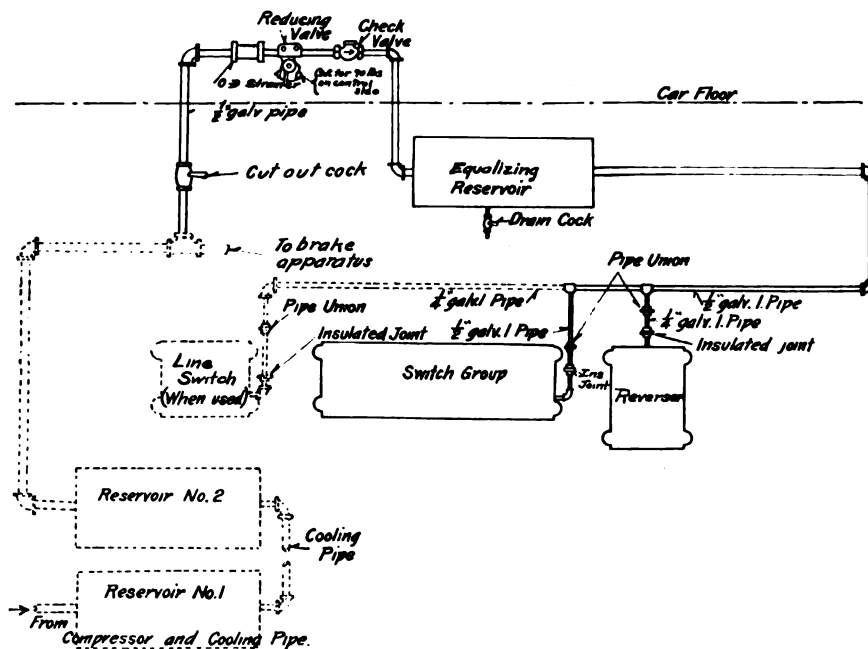 Reducing
Valve
Check
Valve
Strainer
Set for 70 lbs
on control
side
Car Floor
1/2" galv pipe
Cut out cock
Equalizing
Reservoir
Drain Cock
To brake
apparatus
Pipe Union
1/4" galv. I Pipe
1/2" galv. I. Pipe
Pipe Union
1/2" galv. I Pipe
1/4" galv. I. Pipe
Insulated Joint
Insulated Joint
Line
Switch
(When used)
Switch Group
Ins
Joint
Reverser
Reservoir No. 2
Cooling
Pipe
Reservoir No. 1
From
Compressor and Cooling Pipe.